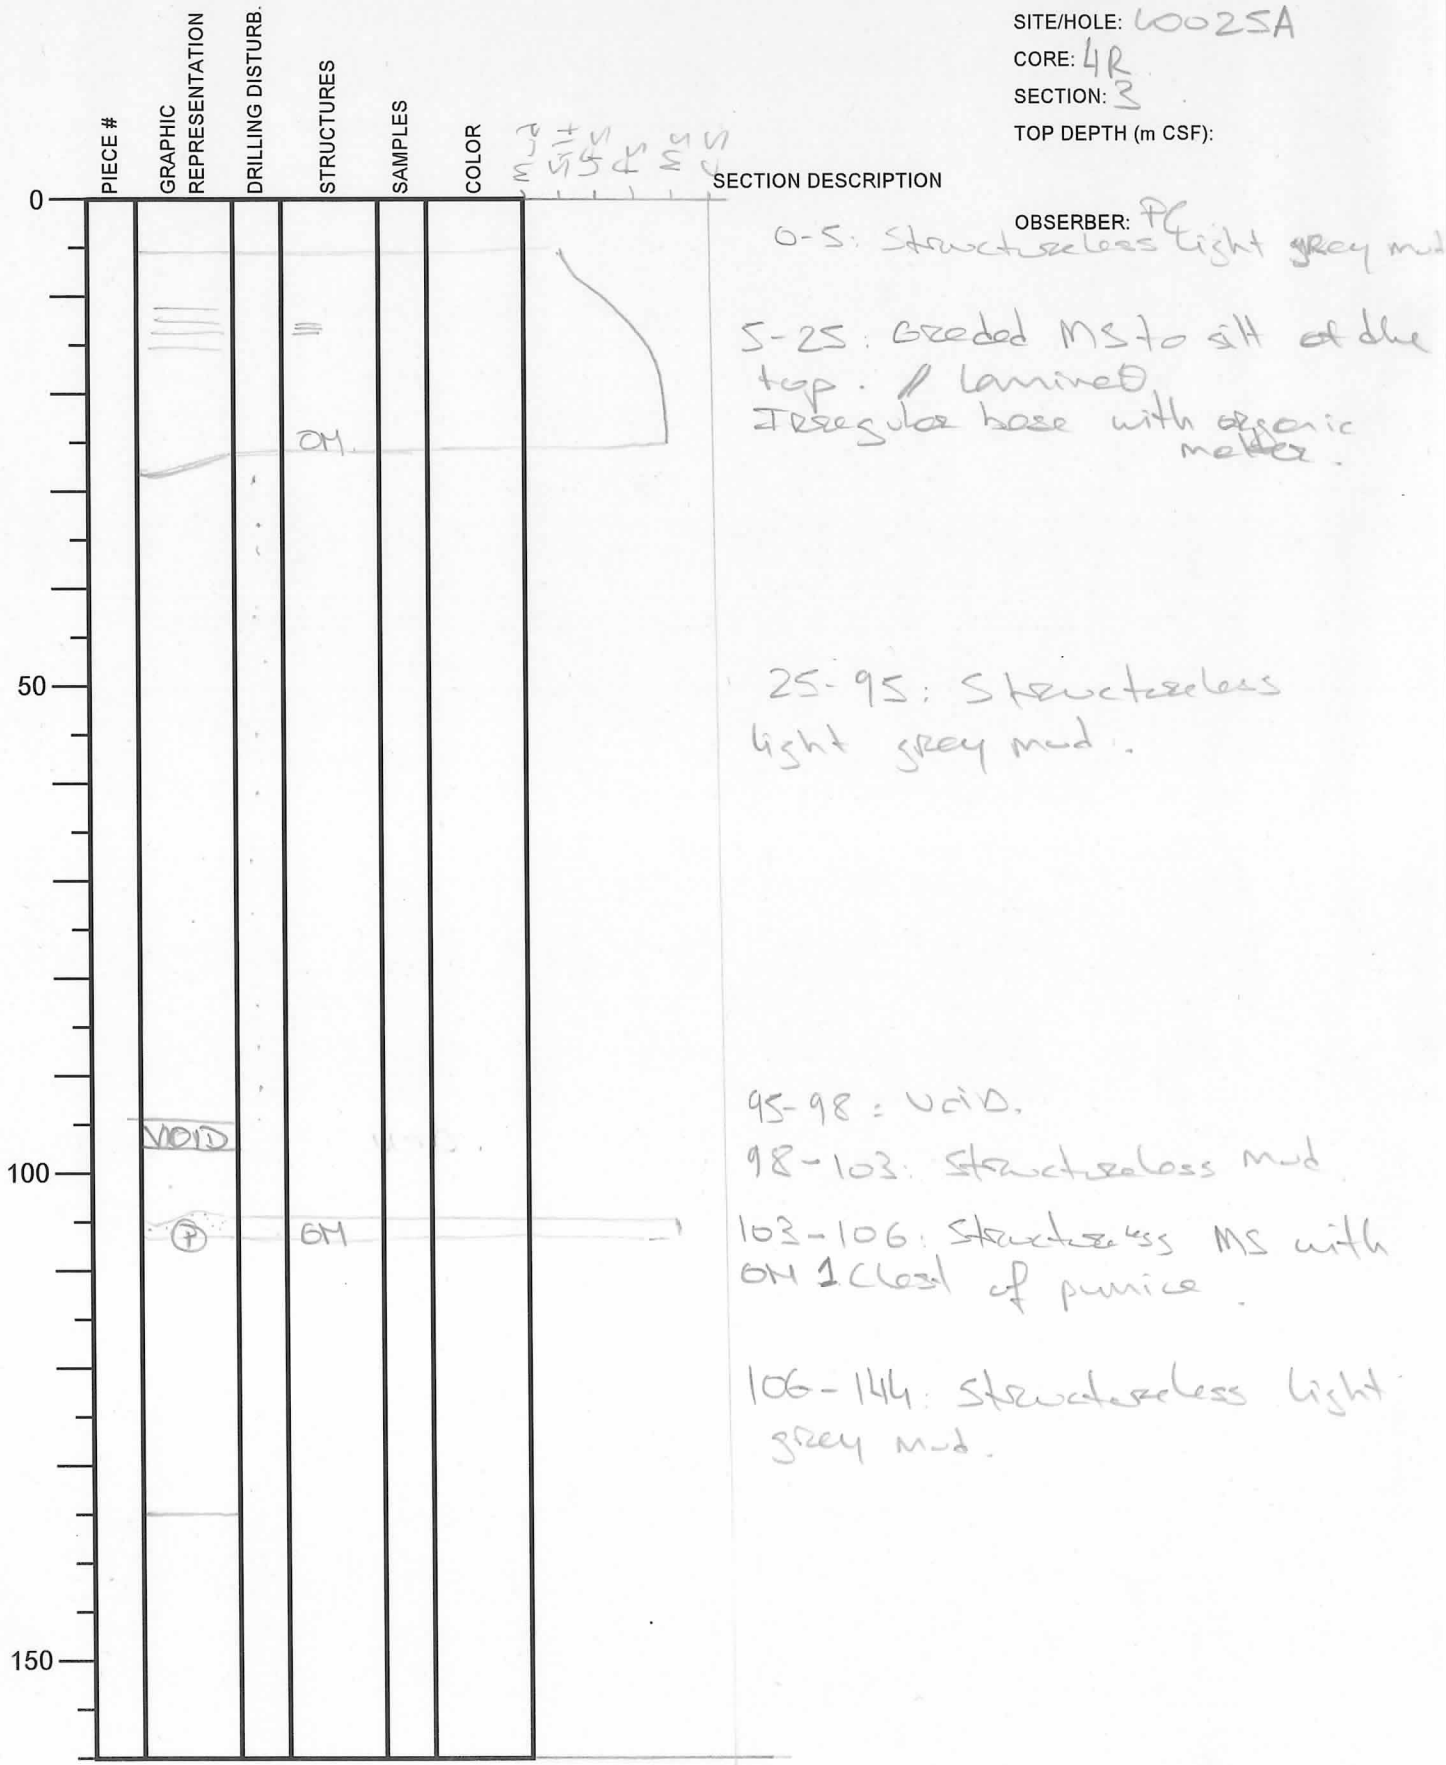 SITE/HOLE: C0025A
CORE: 4R
SECTION: 3
TOP DEPTH (m CSF):
OBSERBER: PC
PIECE #
GRAPHIC REPRESENTATION
DRILLING DISTURB.
STRUCTURES
SAMPLES
COLOR
mud
silt
FS
MS
CS
SECTION DESCRIPTION
0
0-5: Structureless light grey mud
5-25: Graded MS to silt at the
top. // Laminat
Irregular base with organic
matter.
OM.
50
25-95: Structureless
light grey mud.
95-98: VOID.
VOID
98-103: Structureless mud
100
P
OM
103-106: Structureless MS with
OM 1 Clast of pumice.
106-144: Structureless light
grey mud.
150